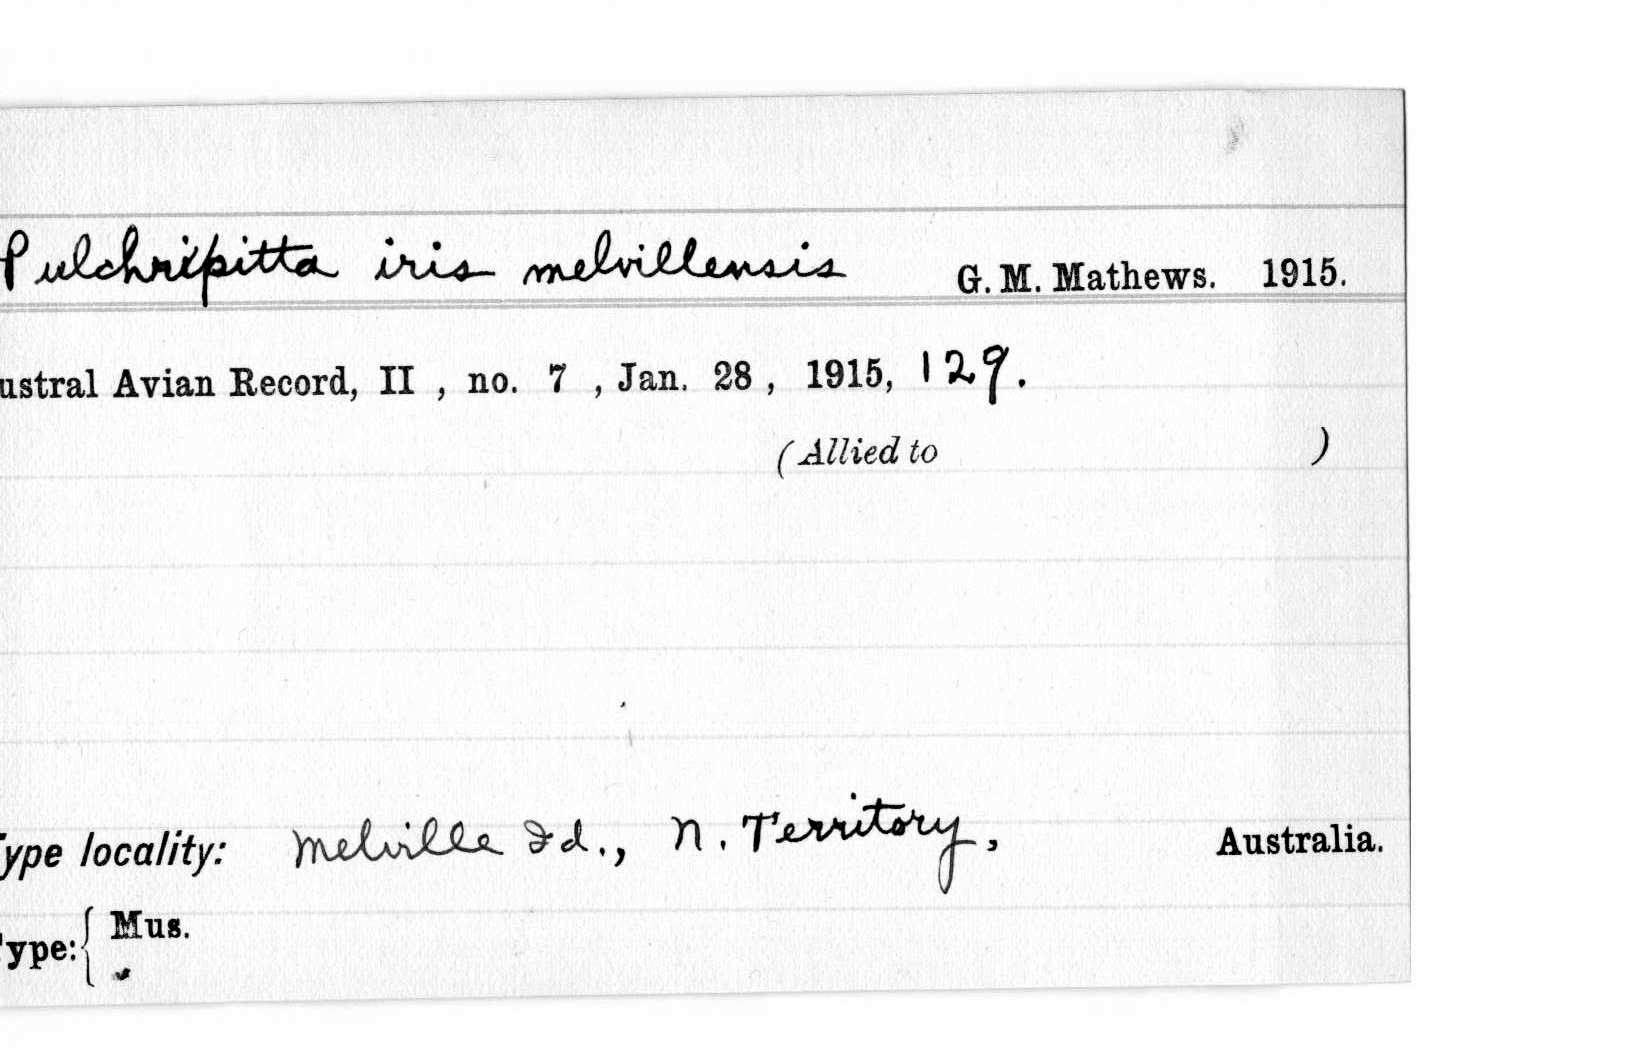 Pulchripitta iris melvillensis G. M. Mathews. 1915.
ustral Avian Record, II , no. 7 , Jan. 28 , 1915, 129.
(Allied to )
Type locality: Melville Id., N. Territory, Australia.
Type: { Mus.